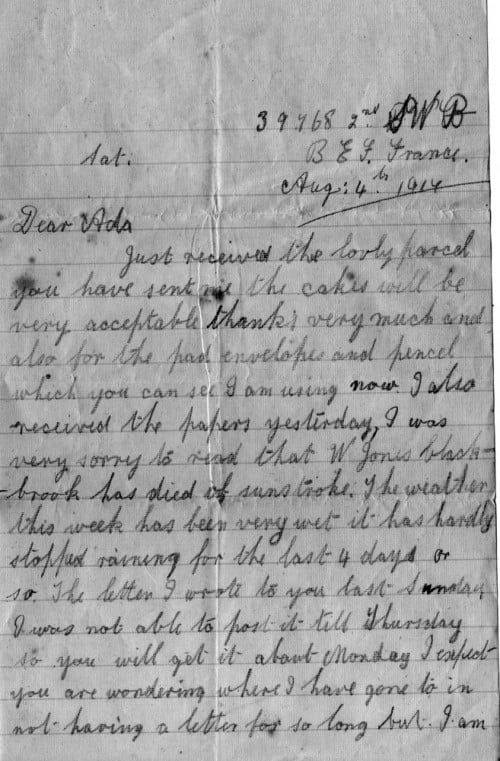 39768 2nd SWB
Sat. B E F. France.
Aug: 4th 1917
Dear Ada
Just received the lovly parcel
you have sent me the cakes will be
very acceptable thanks very much and
also for the pad envelopes and pencel
which you can see I am using now. I also
received the papers yesterday, I was
very sorry to read that W Jones black-
-brook has died of sunstroke. The weather
this week has been very wet it has hardly
stopped raining for the last 4 days or
so. The letter I wrote to you last Sunday
I was not able to post it till Thursday
so you will get it about Monday I expect
you are wondering where I have gone to in
not having a letter for so long but. I am